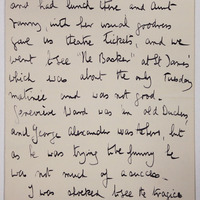 and had lunch there and Aunt
Fanny, with her usual goodness
gave us theatre tickets, and we
went to see "The Basker" at St James'
which was about the only Tuesday
matinee and was not good.
Genevieve Ward was an old Duchess,
and George Alexander was there, but
as he was trying to be funny he
was not much of a success.
I was shocked to see the tragic